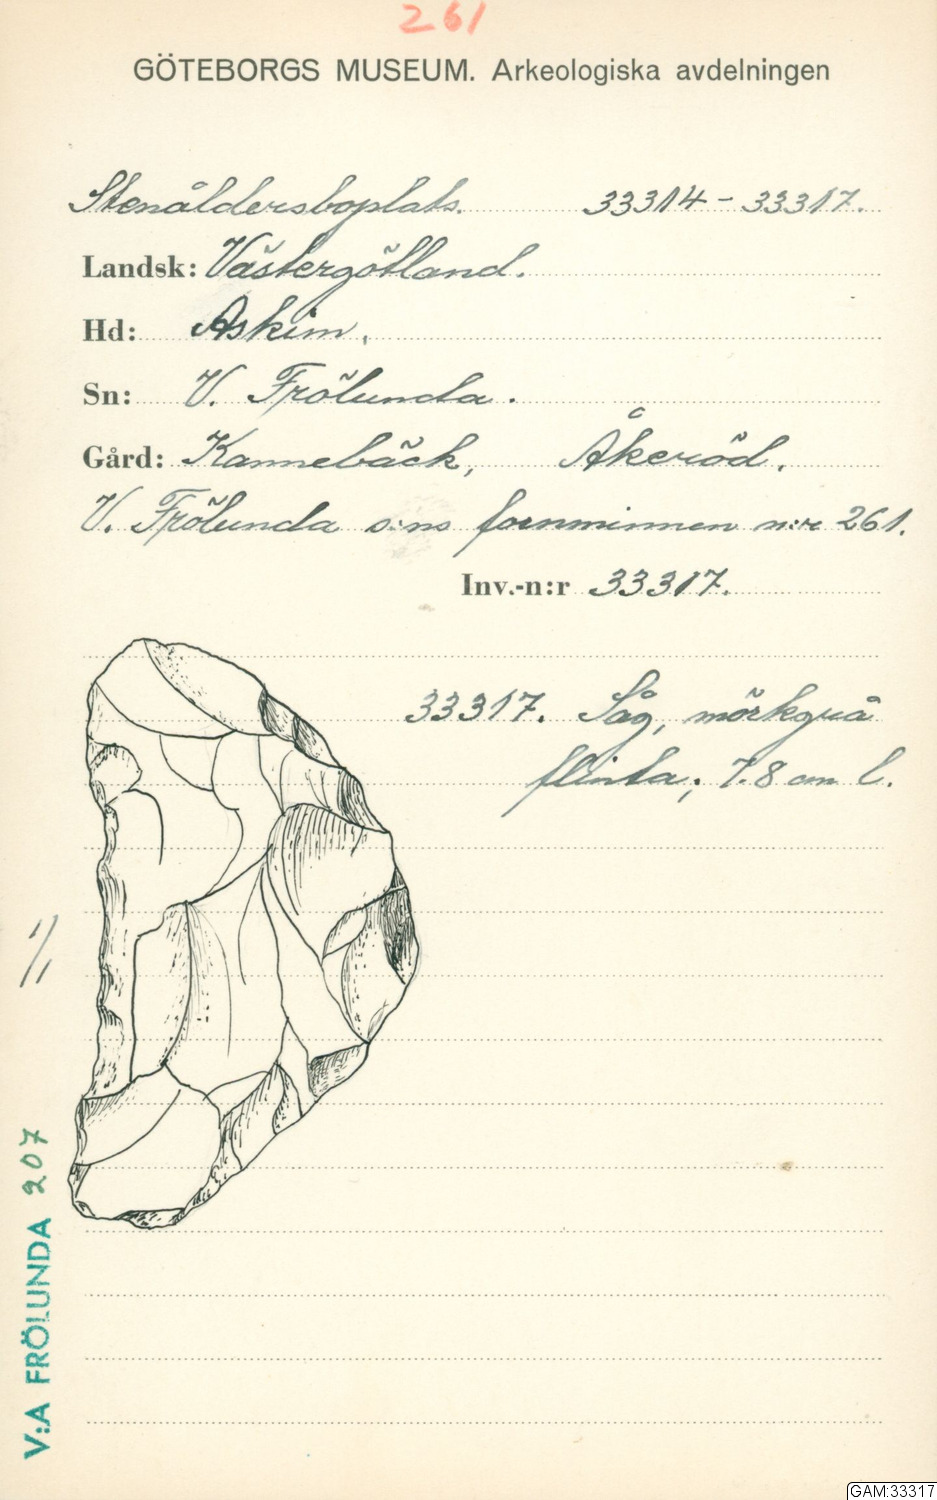 261
GÖTEBORGS MUSEUM. Arkeologiska avdelningen
Stenåldersboplats. 33314 - 33317.
Landsk: Västergötland.
Hd: Askim.
Sn: V. Frölunda.
Gård: Kannebäck, Åkeröd.
V. Frölunda s:ns fornminnen n:r 261.
Inv.-n:r 33317.
33317. Såg, mörkgrå
flinta; 7.8 cm l.
1/1
V:A FRÖLUNDA 207
GAM:33317